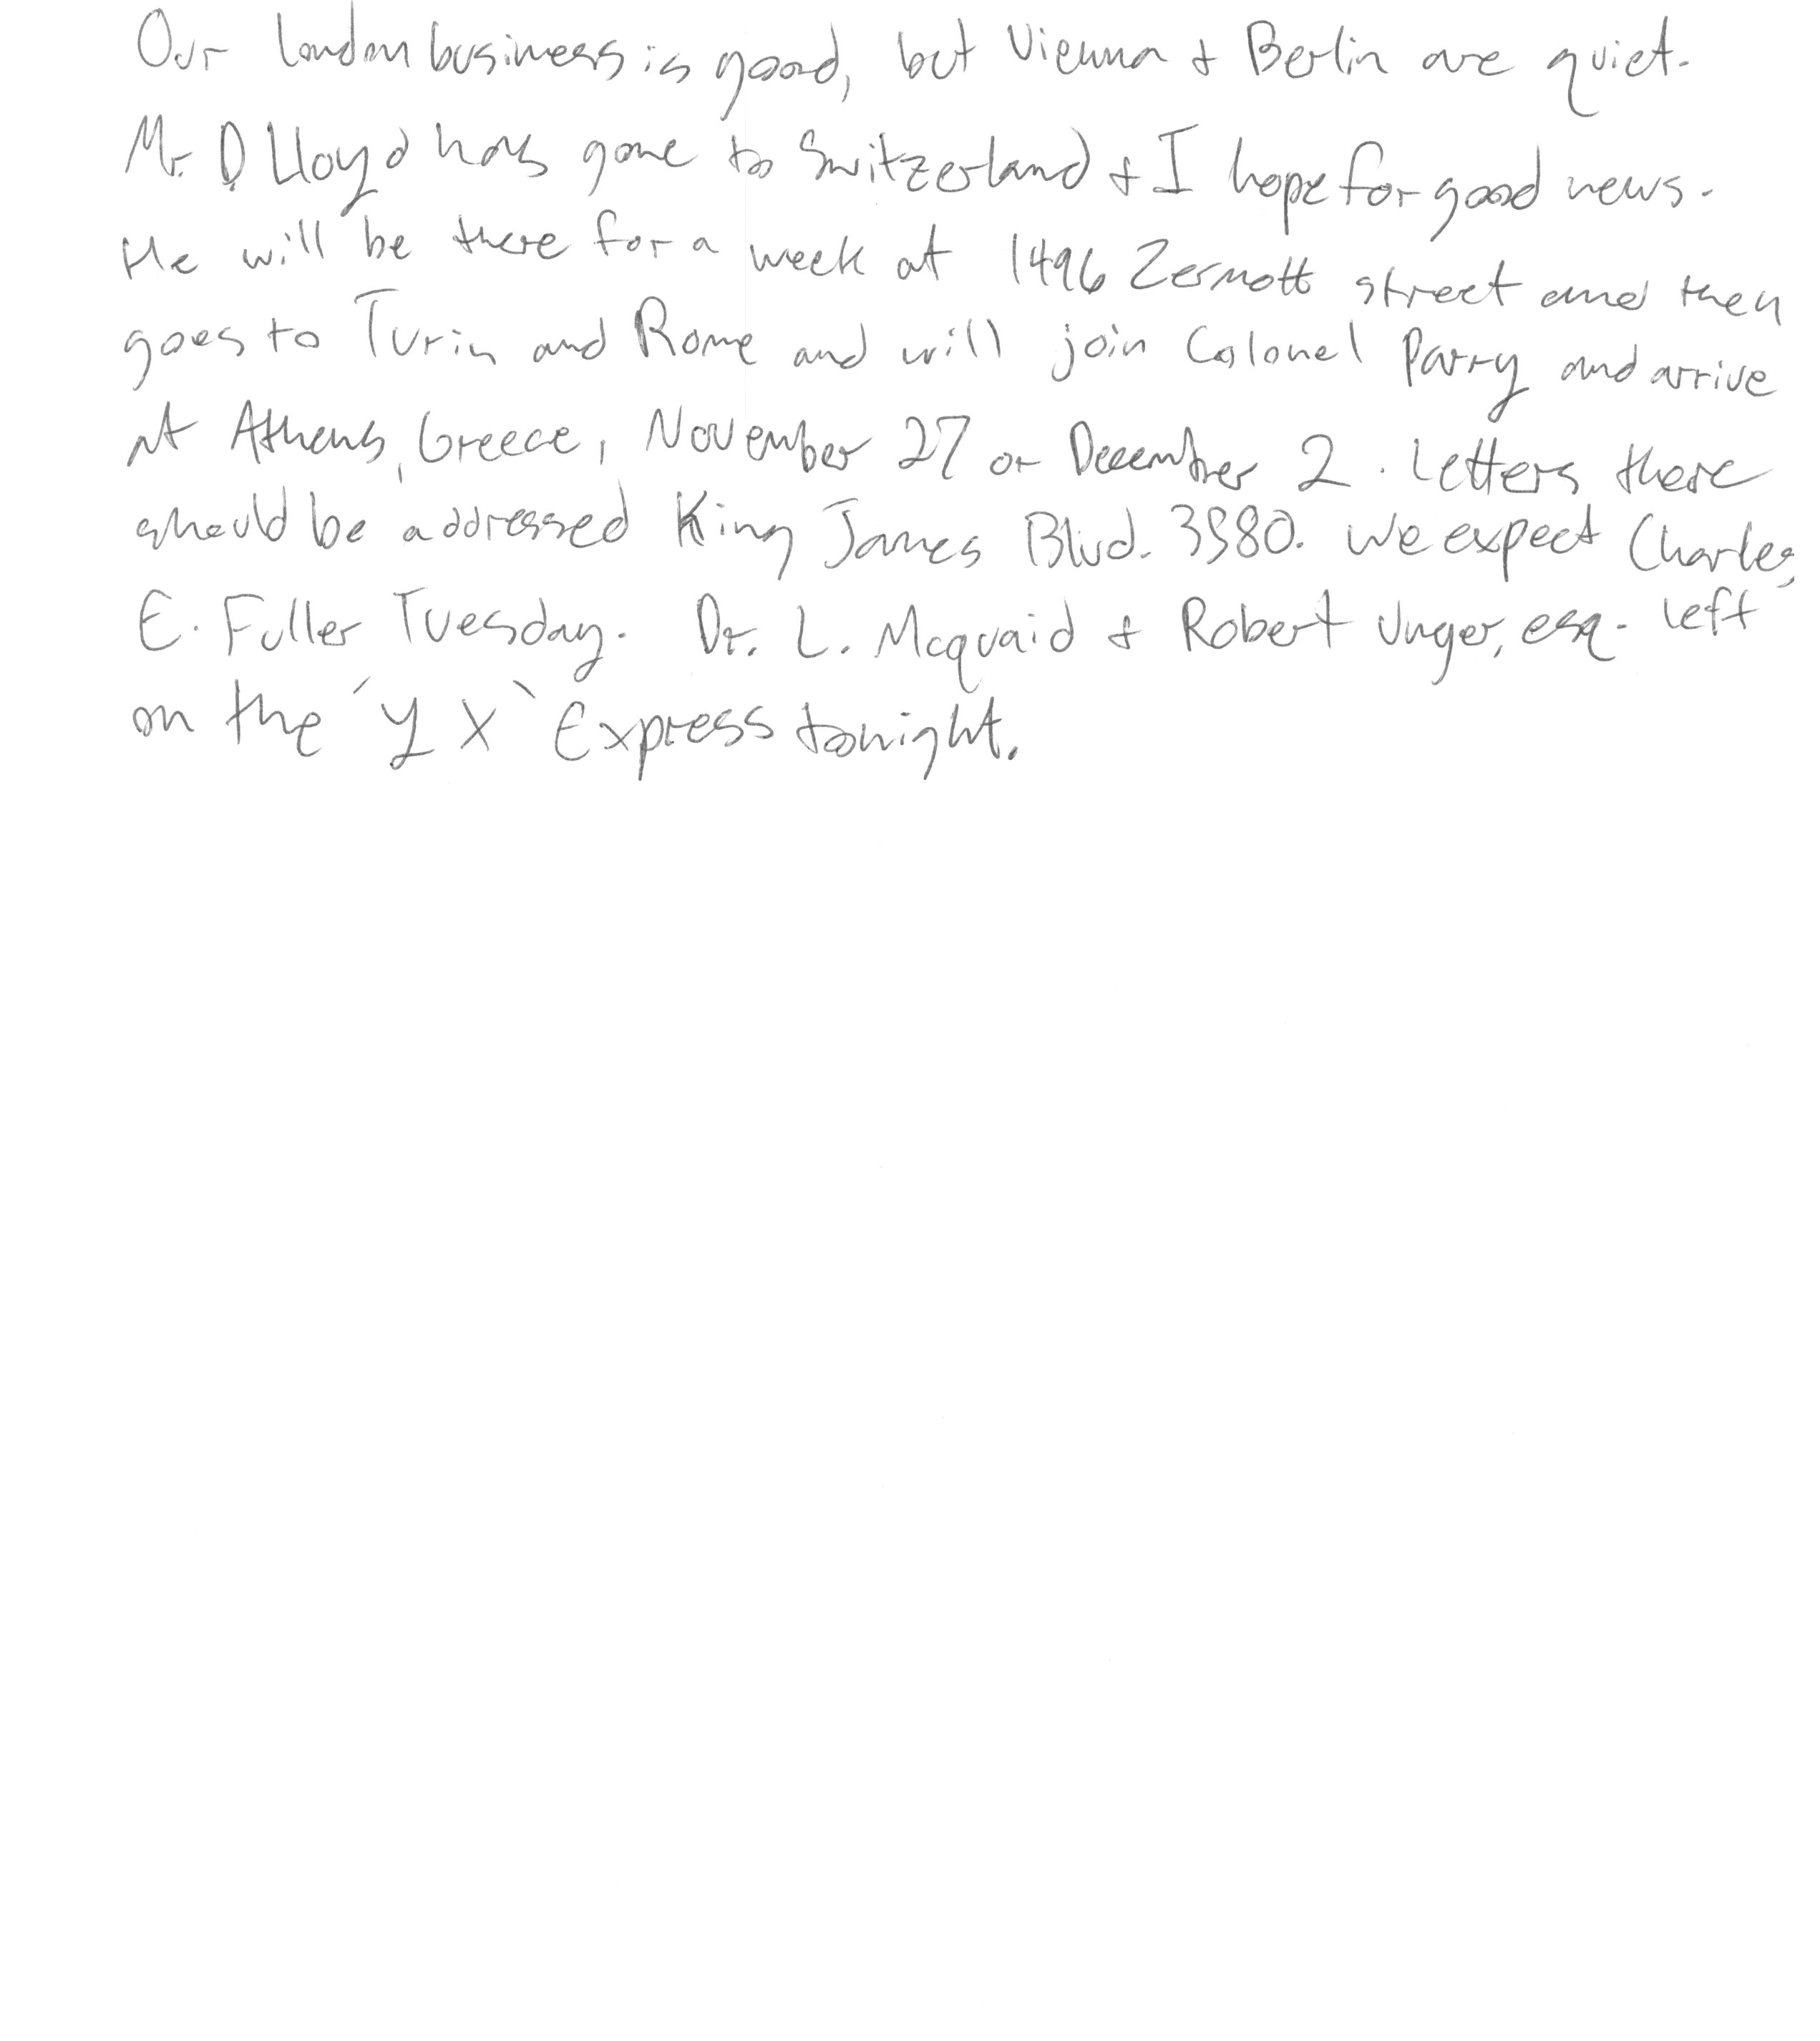 Our London business is good, but Vienna + Berlin are quiet.
Mr. D. Lloyd has gone to Switzerland + I hope for good news.
He will be there for a week at 1496 Zermott street and then
goes to Turin and Rome and will join Colonel Parry and arrive
at Athens, Greece, November 27 or December 2. Letters there
should be addressed King James Blvd. 3580. We expect Charles
E. Fuller Tuesday. Dr. L. Mcquaid + Robert Unger, esq. left
on the 'Y X' Express tonight.